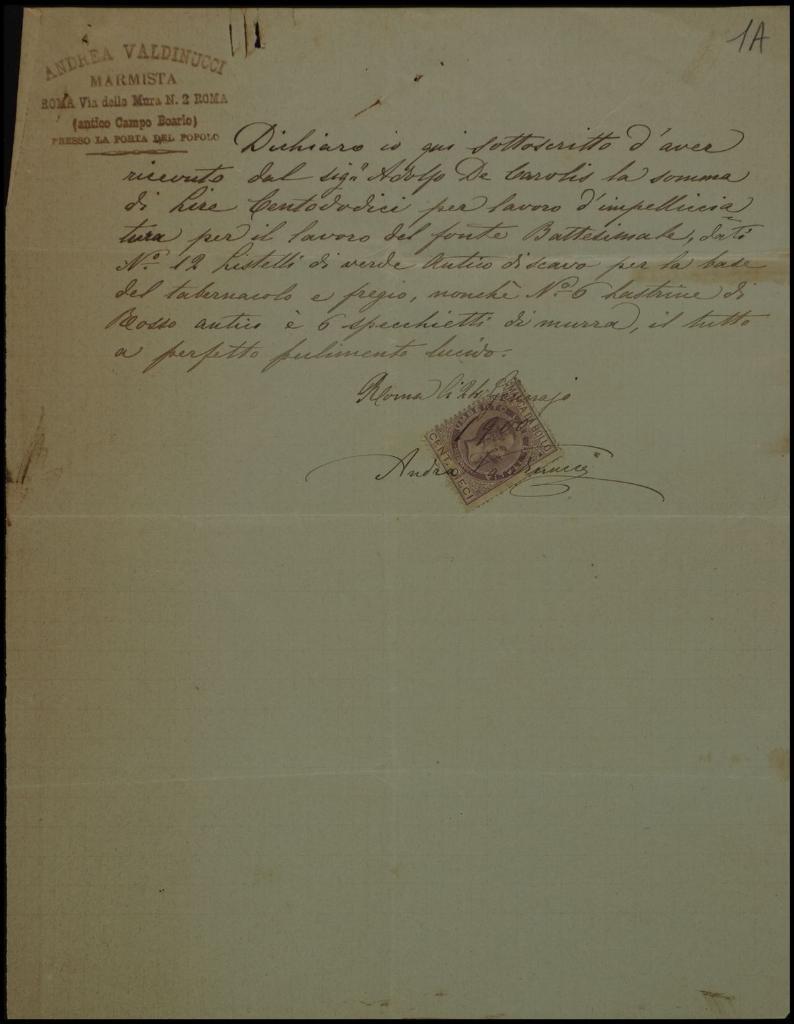 1A
ANDREA VALDINUCCI
MARMISTA
ROMA Via delle Mura N. 2 ROMA
(antico Campo Boario)
PRESSO LA PORTA DEL POPOLO
Dichiaro io qui sottoscritto d'aver
ricevuto dal sigr Adolfo De Carolis la somma
di Lire Centododici per lavoro d'impelliccia
tura per il lavoro del fonte Battesimale, dati
No. 12 Listelli di verde Antico di scavo per la base
del tabernacolo e fregio, nonchè No. 6 lastrine di
Rosso antico è 6 specchietti di murra, il tutto
a perfetto pulimento lucido.
Roma li 24 Gennajo
MARCA DA BOLLO
CENT. DIECI
Andrea